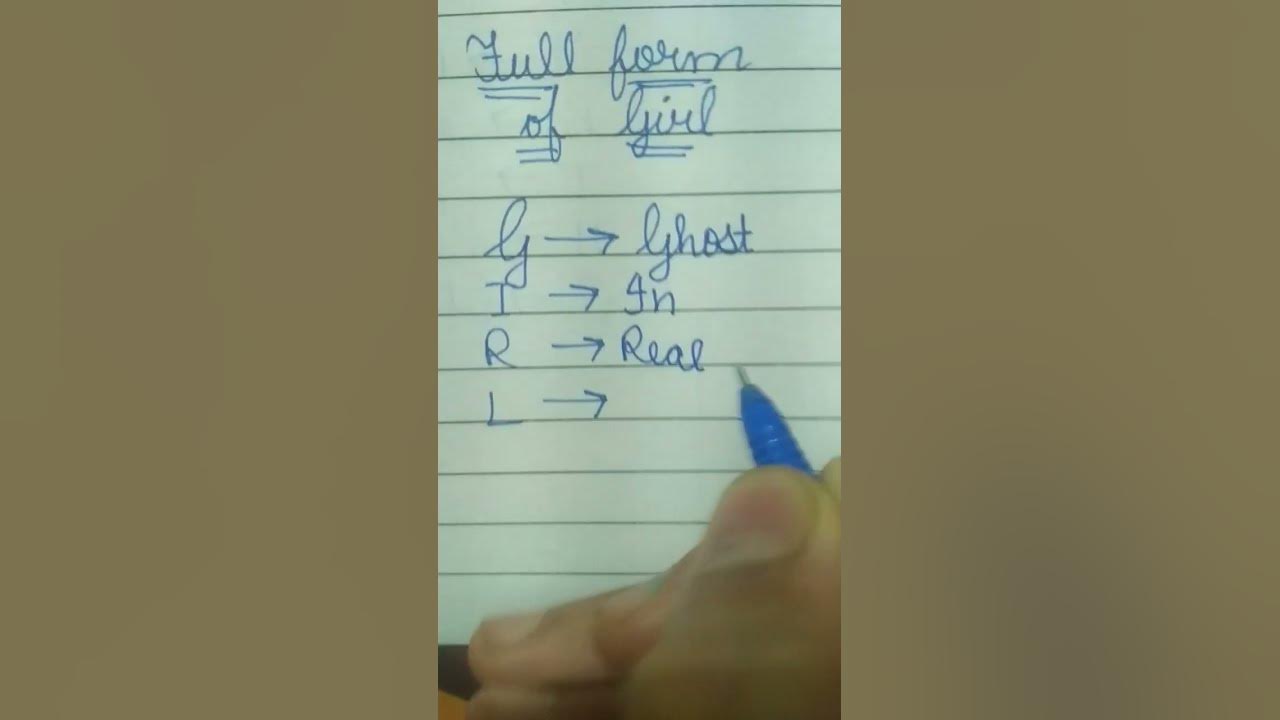 Full form
of Girl
G → Ghost
I → In
R → Real
L →